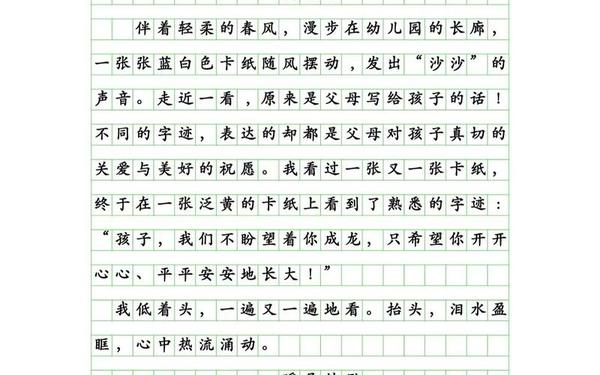 伴着轻柔的春风，漫步在幼儿园的长廊，
一张张蓝白色卡纸随风摆动，发出“沙沙”的
声音。走近一看，原来是父母写给孩子的话！
不同的字迹，表达的却都是父母对孩子真切的
关爱与美好的祝愿。我看过一张又一张卡纸，
终于在一张泛黄的卡纸上看到了熟悉的字迹：
“孩子，我们不盼望着你成龙，只希望你开开
心心、平平安安地长大！”
我低着头，一遍又一遍地看。抬头，泪水盈
眶，心中热流涌动。